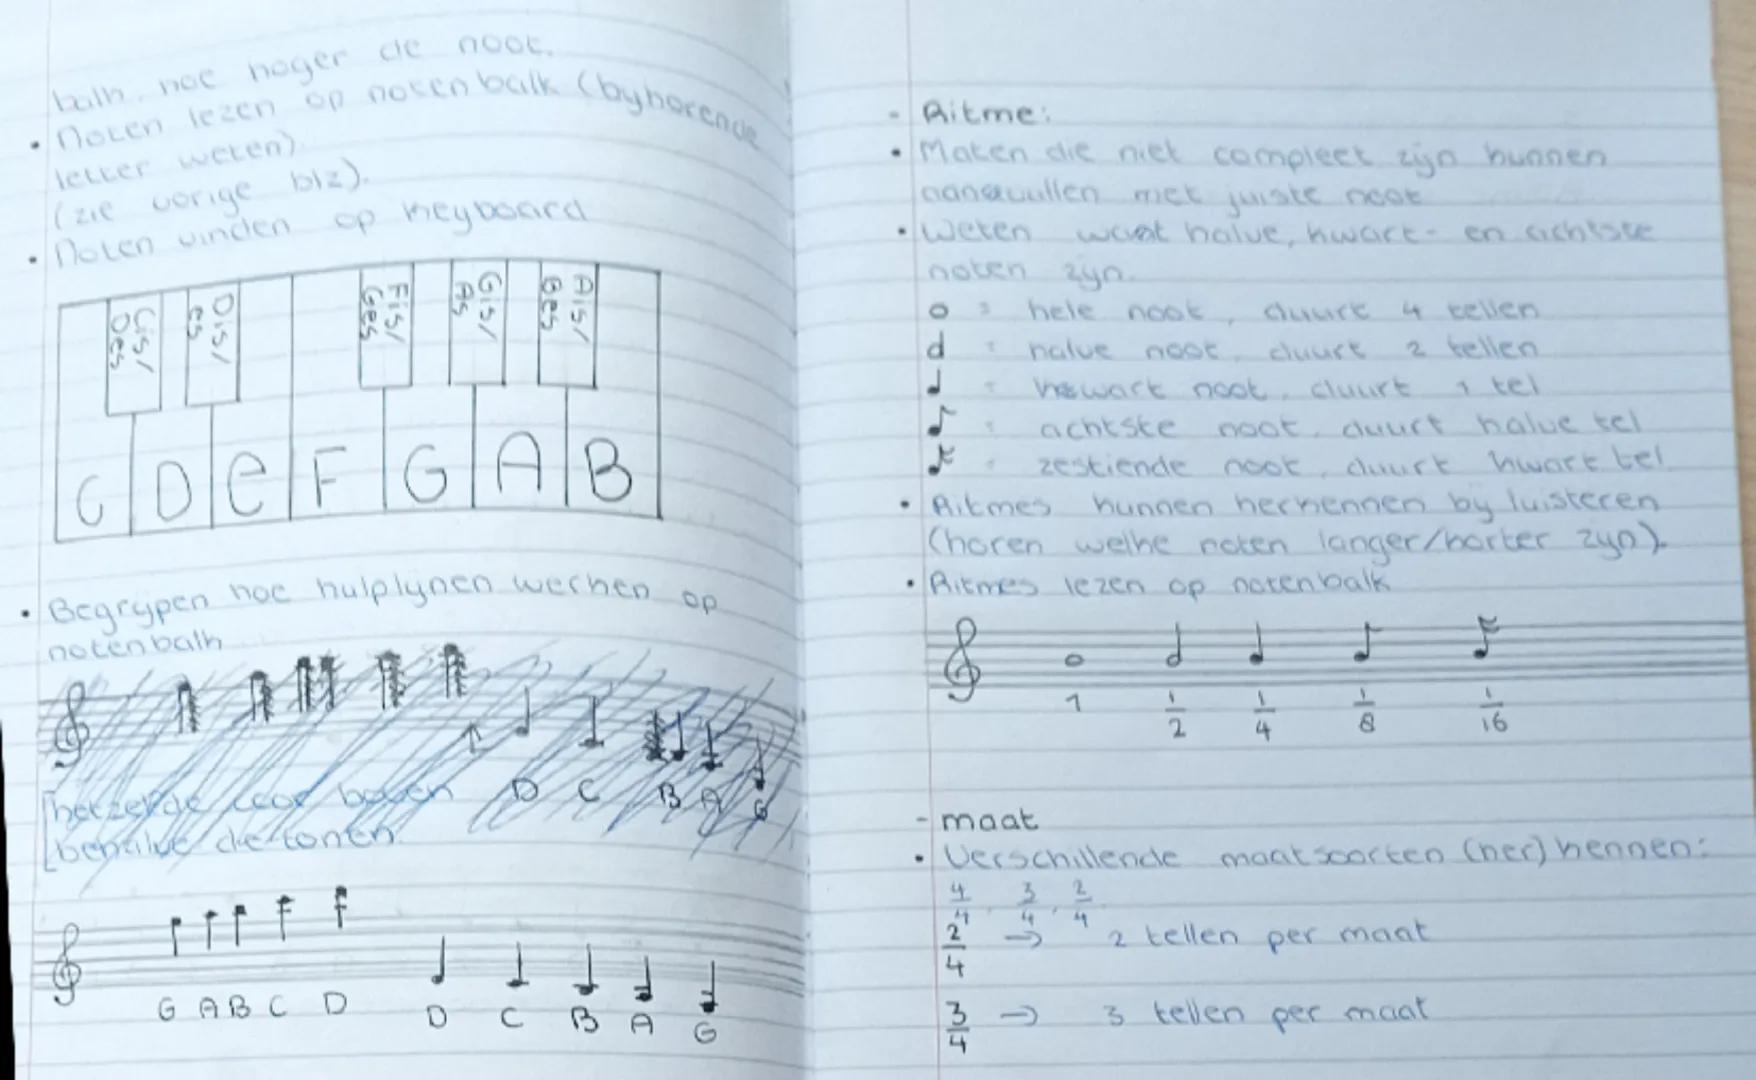 balk, hoe hoger de noot.
• Noten lezen op notenbalk (byhorende
letter weten).
(zie vorige blz).
• Noten vinden op keyboard
Cis/
Des
Dis/
es
Fis/
Ges
Gis/
As
Ais/
Bes
C D e F G A B
• Begrypen hoe hulplynen werken op
notenbalk
D C B A G
hetzelfde voor boven
behalve de tonen.
G A B C D D C B A G
- Ritme:
• Maten die niet compleet zyn kunnen
aanvullen met juiste noot
• Weten wat halve, kwart- en achtste
noten zyn.
= hele noot, duurt 4 tellen
= halve noot, duurt 2 tellen
= kwart noot, duurt 1 tel
= achtste noot, duurt halve tel
= zestiende noot, duurt kwart tel
• Ritmes kunnen herkennen by luisteren
(horen welke noten langer/korter zyn).
• Ritmes lezen op notenbalk
1 1/2 1/4 1/8 1/16
- maat
• Verschillende maatsoorten (her)kennen:
4/4, 3/4, 2/4
2/4 → 2 tellen per maat
3/4 → 3 tellen per maat